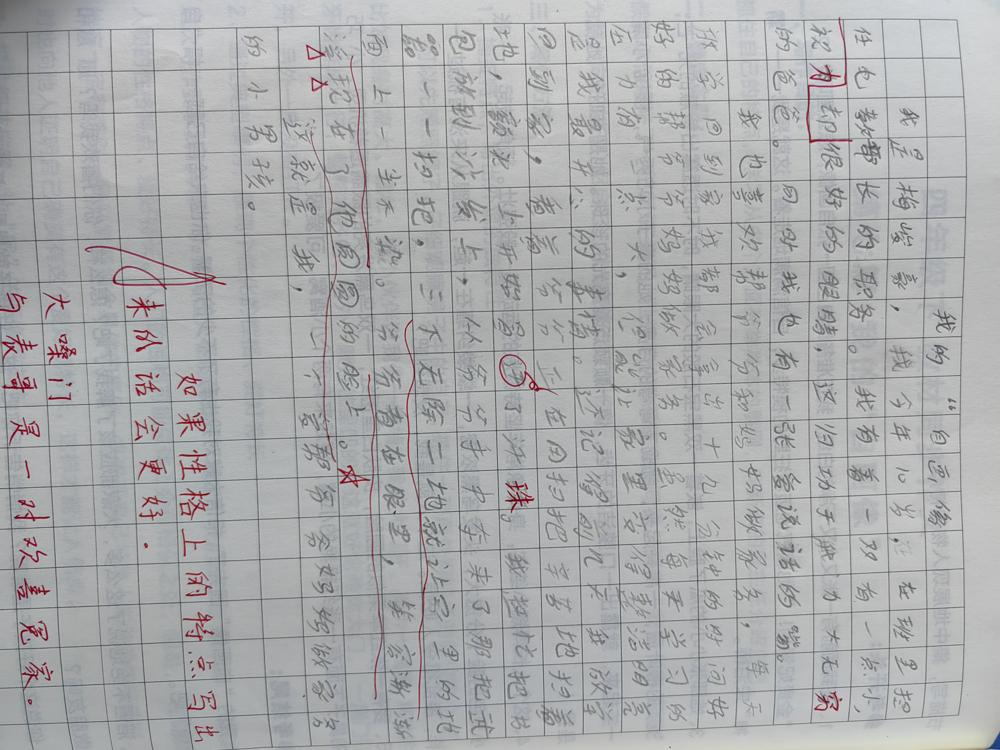 我的“自画像
我是梅峻豪，我今年10岁，在班里担
任电教部长的职务。我有着一双有一点小，
视力却很好的眼睛，这归功于我力大无穷
的爸爸。同时我也有一张爱说话的嘴。
我也喜欢帮爷爷和妈妈做家务，每天
放学回到家我都会拿出十几分钟的时间好
好的帮爷爷妈妈做家务。虽然每天学习的
压力有一点大，但能让家里变得整洁明亮
是我最开心的事情。还记得前几天我放学
回到家，看着爷爷正在用扫把辛苦地扫着
地，额头上开始冒了汗珠。我赶忙把书
包放到沙发上，从爷爷手中夺来了那把武
器一一扫把，三下无除二地就让家里的地
面上一尘不染。爷爷看在眼里，笑容渐渐
浮现在了他圆圆的脸上。
这就是我，一个爱帮爷爷妈妈做家务
的小男孩。
如果性格上的特点写出
来的话会更好.
大嗓门
与表哥是一对欢喜冤家。